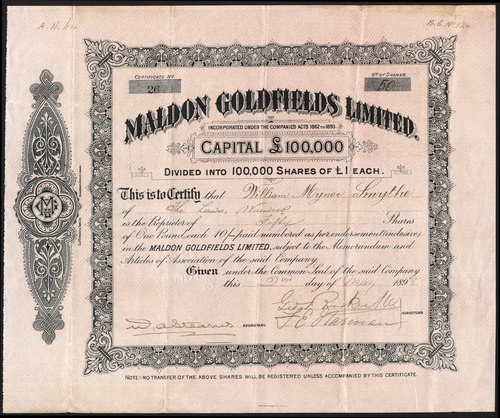 A.N.
B.C. No.
CERTIFICATE No
No OF SHARES
26
50
MALDON GOLDFIELDS LIMITED.
INCORPORATED UNDER THE COMPANIES ACTS 1862 TO 1893.
CAPITAL £100,000
DIVIDED INTO 100,000 SHARES OF £1 EACH.
This is to Certify that William Mynor Smythe
of The
is the Proprietor of Fifty Shares
of One Pound each 10/- paid numbered as per endorsement (inclusive)
in the MALDON GOLDFIELDS LIMITED, subject to the Memorandum and
Articles of Association of the said Company.
Given under the Common Seal of the said Company
this 2nd day of May 189
SECRETARY
DIRECTORS
NOTE:- NO TRANSFER OF THE ABOVE SHARES WILL BE REGISTERED UNLESS ACCOMPANIED BY THIS CERTIFICATE.